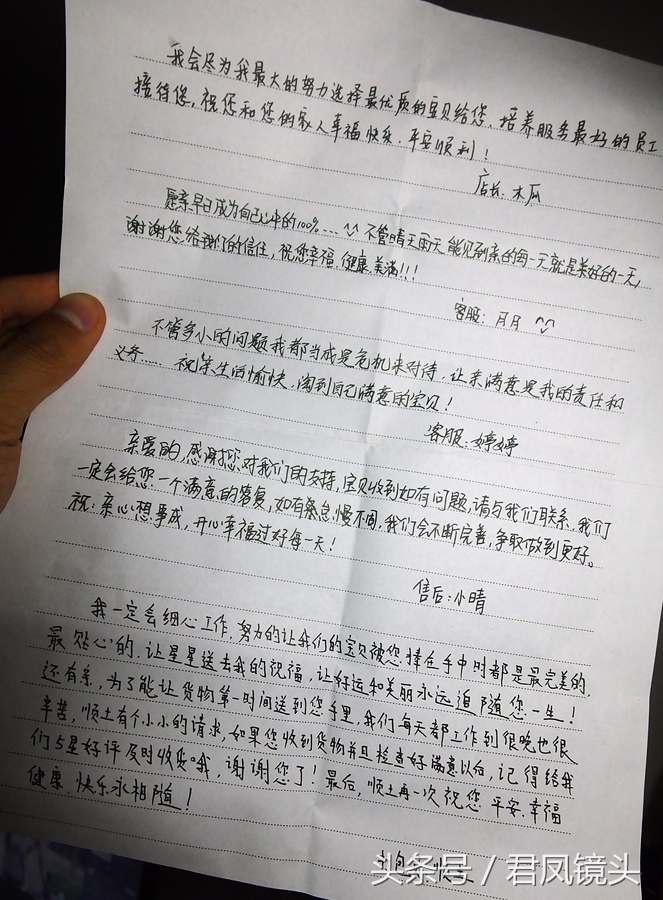 我会尽为我最大的努力选择最优质的宝贝给您、培养服务最好的员工
接待您,祝您和您的家人幸福快乐.平安顺利!
店长:木瓜
愿亲早日成为自己心中的100%.... 不管晴天雨天能见到亲的每一天就是美好的一天,
谢谢您给我们的信任,祝您幸福.健康.美满!!!
客服:月月
不管多小的问题我都当成是危机来对待,让亲满意是我的责任和
义务..... 祝亲生活愉快,淘到自己满意的宝贝!
客服:婷婷
亲爱的,感谢您对我们的支持,宝贝收到如有问题,请与我们联系.我们
一定会给您一个满意的答复,如有条怠慢不周,我们会不断完善,争取做到更好。
祝:亲心想事成,开心幸福过好每一天!
售后:小晴
我一定会细心工作.努力的让我们的宝贝被您捧在手中时都是最完美的.
最贴心的.让星星送去我的祝福,让好运和美丽永远追随您一生!
还有亲,为了能让货物第一时间送到您手里,我们每天都工作到很晚也很
辛苦,顺土有个小小的请求,如果您收到货物并且检查好满意以后,记得给我
们5星好评及时收货哦,谢谢您了!最后,顺土再一次祝您平安.幸福
健康.快乐永相随!
头条号/君凤镜头